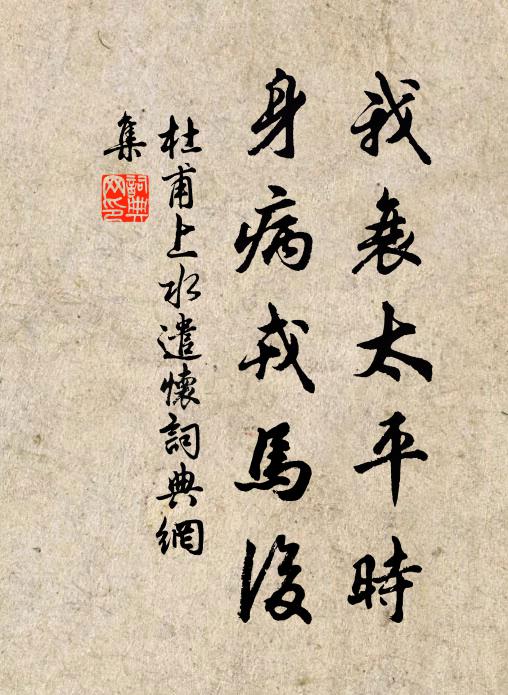 我衰太平時
身病戎馬後
杜甫上水遣懷詞典網
集
詞典
网印